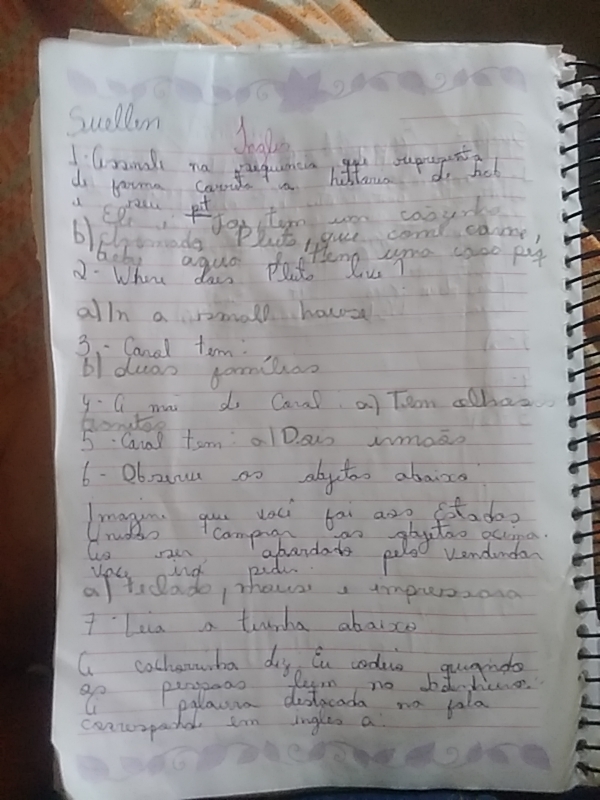 Suellen
Inglês
1. Assinale na sequência que representa
de forma correta a história de bob
e seu pet
Ele e Joe tem um casinha
b) chamado Pluto, que come carne,
bebe agua tem uma casa peq
2- Where does Pluto live?
a) In a small house
3- Carol tem:
b) duas famílias
4- A mãe de Carol: a) Tem olhos
5- Carol tem: a) Dois irmãos
6- Observe os objetos abaixo:
Imagine que você foi aos Estados
Unidos comprar os objetos acima.
Ao ser abordado pelo vendedor
você irá pedir:
a) teclado, mouse e impressora
7- Leia a tirinha abaixo
A cachorrinha diz Eu odeio quando
as pessoas leem no banheiro.
A palavra destacada na fala
corresponde em inglês a: